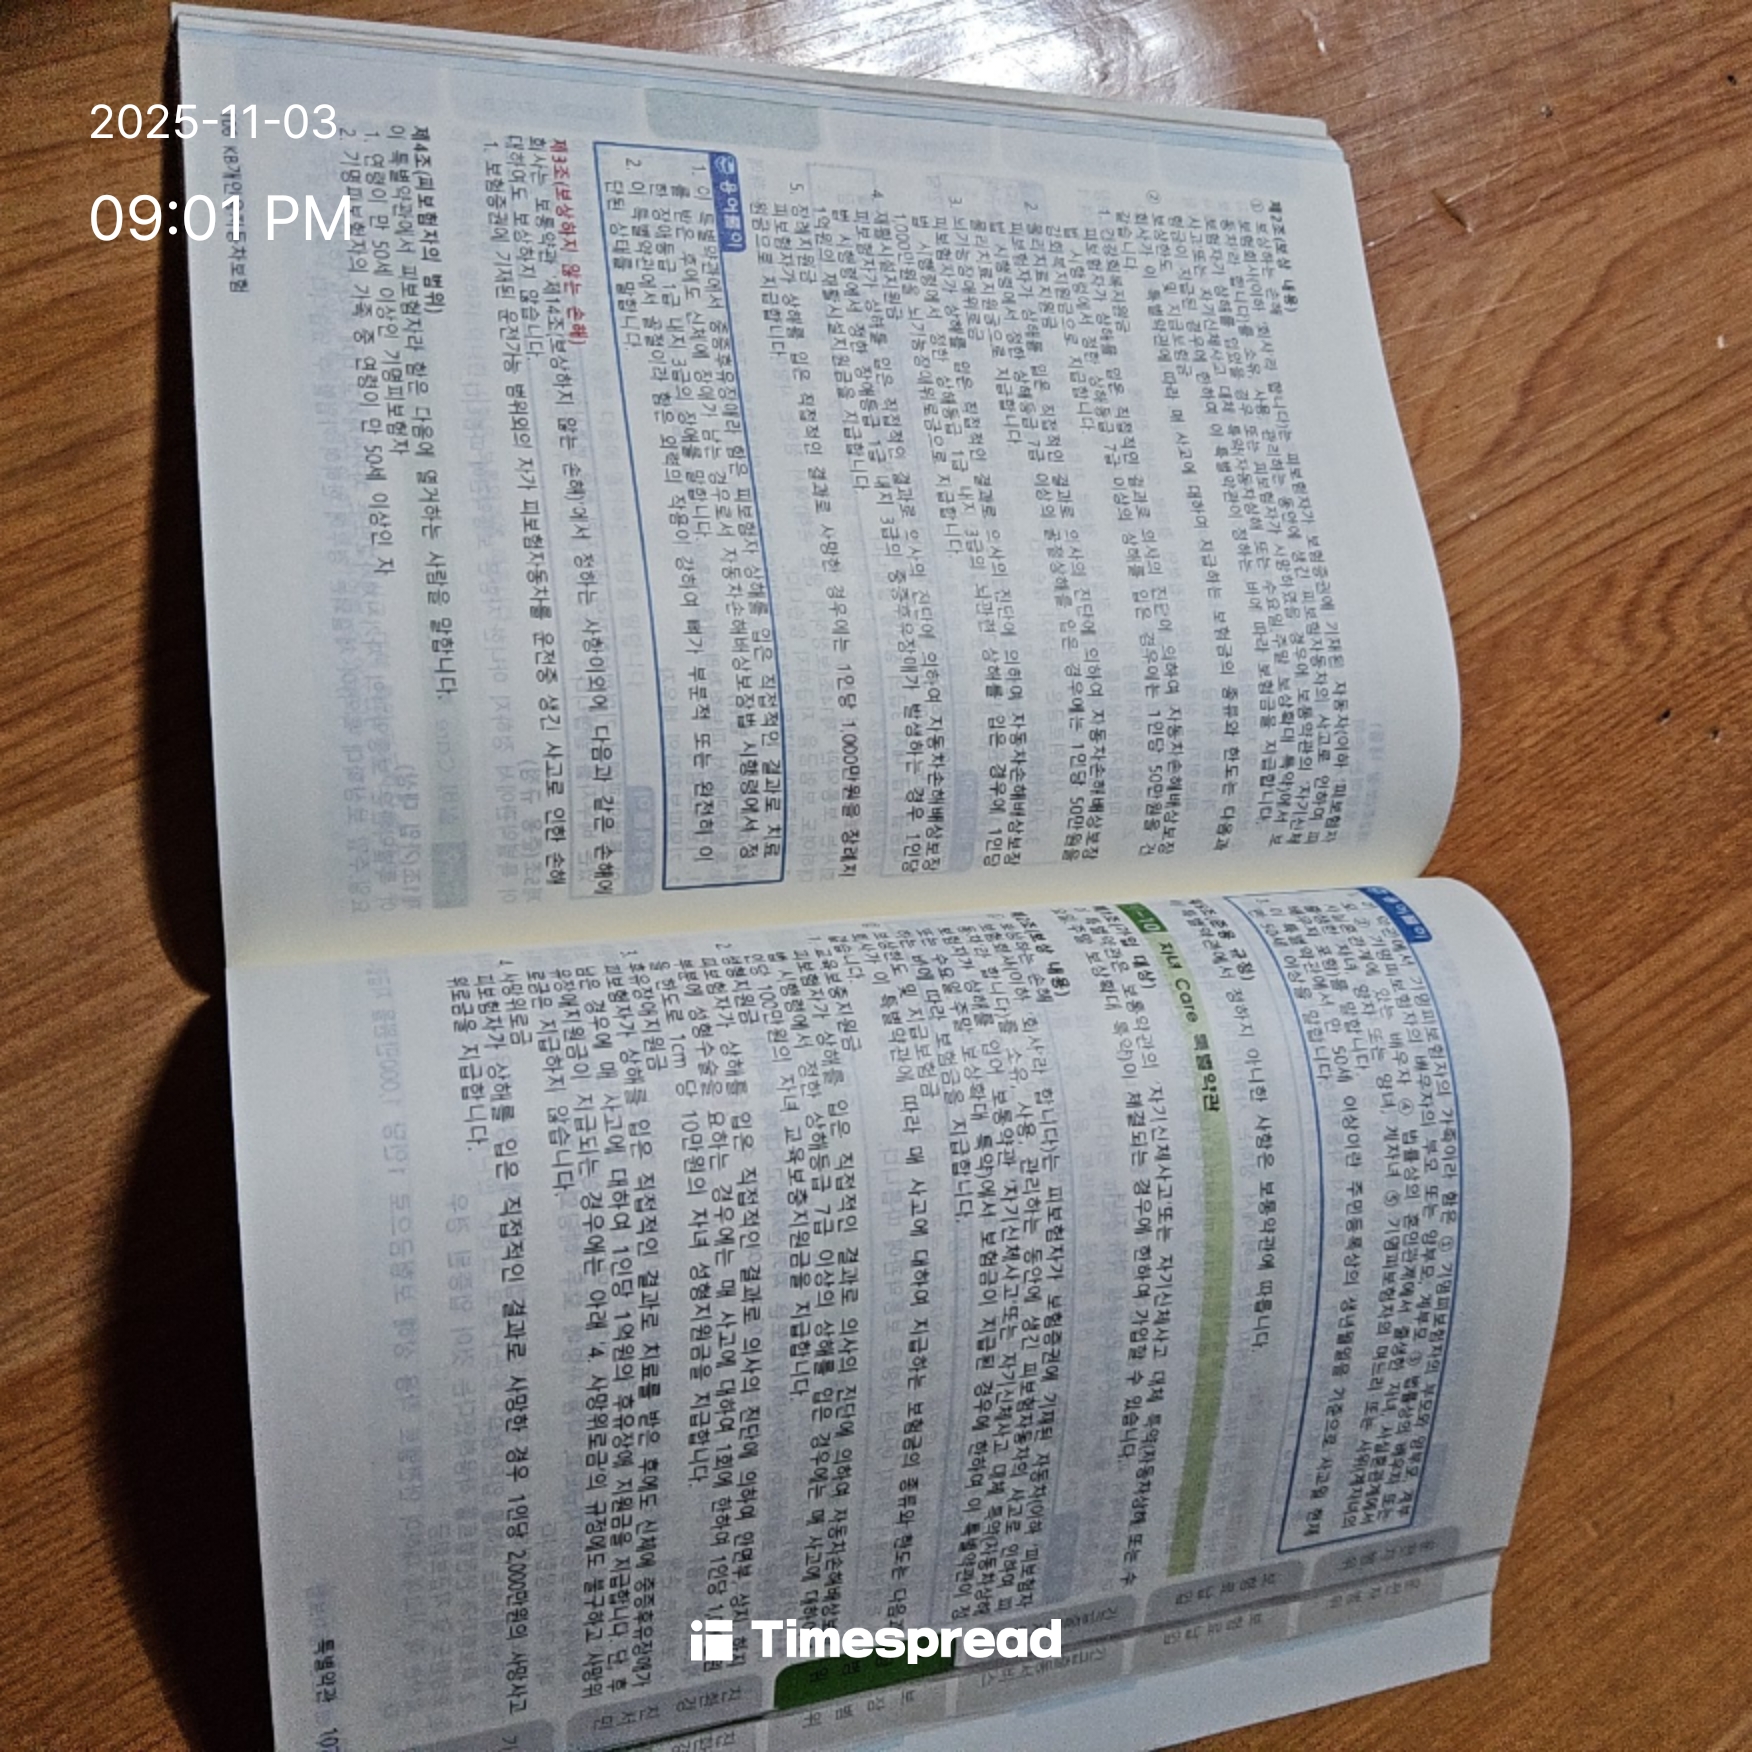 2025-11-03
09:01 PM
제2조(보상 내용)
① 보상하는 손해
보험회사(이하 '회사'라 합니다)는 피보험자가 보험증권에 기재된 자동차(이하 '피보험자
동차'라 합니다)를 소유, 사용, 관리하는 동안에 생긴 피보험자동차의 사고로 인하여 피
보험자가 상해를 입었을 경우 또는 피보험자가 사망하였을 경우에 보통약관의 '자기신체
사고' 또는 '자기신체사고 대체 특약(자동차상해 또는 수요일/주말 보상확대 특약)'에서 보
험금이 지급된 경우에 한하여 이 특별약관이 정하는 바에 따라 보험금을 지급합니다.
② 보상한도 및 지급보험금
회사가 이 특별약관에 따라 매 사고에 대하여 지급하는 보험금의 종류와 한도는 다음과
같습니다.
1. 건강회복지원금
피보험자가 상해를 입은 직접적인 결과로 의사의 진단에 의하여 자동차손해배상보장
법 시행령에서 정한 상해등급 7급 이상의 상해를 입은 경우에는 1인당 50만원을 건
강회복지원금으로 지급합니다.
2. 물리치료지원금
피보험자가 상해를 입은 직접적인 결과로 의사의 진단에 의하여 자동차손해배상보장
법 시행령에서 정한 상해등급 7급 이상의 골절상해를 입은 경우에는 1인당 50만원을
물리치료지원금으로 지급합니다.
3. 뇌기능장애위로금
피보험자가 상해를 입은 직접적인 결과로 의사의 진단에 의하여 자동차손해배상보장
법 시행령에서 정한 상해등급 1급 내지 3급의 뇌관련 상해를 입은 경우에 1인당
1,000만원을 뇌기능장애위로금으로 지급합니다.
4. 재활시설지원금
피보험자가 상해를 입은 직접적인 결과로 의사의 진단에 의하여 자동차손해배상보장
법 시행령에서 정한 장애등급 1급 내지 3급의 중증후유장애가 발생하는 경우 1인당
1억원의 재활시설지원금을 지급합니다.
5. 장례지원금
피보험자가 상해를 입은 직접적인 결과로 사망한 경우에는 1인당 1,000만원을 장례지
원금으로 지급합니다.
용어풀이
1. 이 특별약관에서 중증후유장애라 함은 피보험자 상해를 입은 직접적인 결과로 치료
를 받은 후에도 신체에 장애가 남는 경우로서 자동차손해배상보장법 시행령에서 정
한 장애등급 1급 내지 3급의 장애를 말합니다.
2. 이 특별약관에서 골절이라 함은 외력의 작용이 강하여 뼈가 부분적 또는 완전히 이
단된 상태를 말합니다.
제3조(보상하지 않는 손해)
회사는 보통약관 '제14조(보상하지 않는 손해)'에서 정하는 사항이외에 다음과 같은 손해에
대하여도 보상하지 않습니다.
1. 보험증권에 기재된 운전가능 범위외의 자가 피보험자동차를 운전중 생긴 사고로 인한 손해
제4조(피보험자의 범위)
이 특별약관에서 피보험자라 함은 다음에 열거하는 사람을 말합니다.
1. 연령이 만 50세 이상인 기명피보험자
2. 기명피보험자의 가족 중 연령이 만 50세 이상인 자
KB개인용자동차보험
용어풀이
기명피보험자의 가족이라 함은 ① 기명피보험자의 부모와 양부모, 계부
모 ② 기명피보험자의 배우자의 부모 또는 양부모, 계부모 ③ 법률상의 배우자 또는
사실혼관계에 있는 배우자 ④ 법률상의 혼인관계에서 출생한 자녀, 사실혼관계에서
출생한 자녀, 양자 또는 양녀, 계자녀 ⑤ 기명피보험자의 며느리 또는 사위(계자녀의
배우자 포함)를 말합니다.
이 특별약관에서 만 50세 이상이란 주민등록상의 생년월일을 기준으로 사고일 현재
만 50세 이상을 말합니다.
(준용 규정)
특별약관에서 정하지 아니한 사항은 보통약관에 따릅니다.
자녀 Care 특별약관
제1조(가입 대상)
특별약관은 보통약관의 '자기신체사고' 또는 '자기신체사고 대체 특약(자동차상해 또는 수
요일/주말 보상확대 특약)'이 체결되는 경우에 한하여 가입할 수 있습니다.
제2조(보상 내용)
보상하는 손해
보험회사(이하 '회사'라 합니다)는 피보험자가 보험증권에 기재된 자동차(이하 '피보험자
동차'라 합니다)를 소유, 사용, 관리하는 동안에 생긴 피보험자동차의 사고로 인하여 피
보험자가 상해를 입어 보통약관 '자기신체사고' 또는 '자기신체사고 대체 특약(자동차상해
또는 수요일/주말 보상확대 특약)'에서 보험금이 지급된 경우에 한하여 이 특별약관이 정
하는 바에 따라 보험금을 지급합니다.
보상한도 및 지급보험금
회사가 이 특별약관에 따라 매 사고에 대하여 지급하는 보험금의 종류와 한도는 다음과
같습니다.
1. 교육보충지원금
피보험자가 상해를 입은 직접적인 결과로 의사의 진단에 의하여 자동차손해배상보
법 시행령에서 정한 상해등급 7급 이상의 상해를 입은 경우에는 매 사고에 대하
인당 100만원의 자녀 교육보충지원금을 지급합니다.
2. 성형지원금
피보험자가 상해를 입은 직접적인 결과로 의사의 진단에 의하여 안면부, 상지, 하지
부분에 성형수술을 요하는 경우에는 매 사고에 대하여 1회에 한하여 1인당
을 한도로 1cm 당 10만원의 자녀 성형지원금을 지급합니다.
3. 후유장애지원금
피보험자가 상해를 입은 직접적인 결과로 치료를 받은 후에도 신체에 중증후유장애가
남은 경우에 매 사고에 대하여 1인당 1억원의 후유장애 지원금을 지급합니다. 단, 후
유장애지원금이 지급되는 경우에는 아래 '4. 사망위로금'의 규정에도 불구하고 사망위
로금은 지급하지 않습니다.
4. 사망위로금
피보험자가 상해를 입은 직접적인 결과로 사망한 경우 1인당 2,000만원의 사망사고
위로금을 지급합니다.
특별약관 107
Timespread